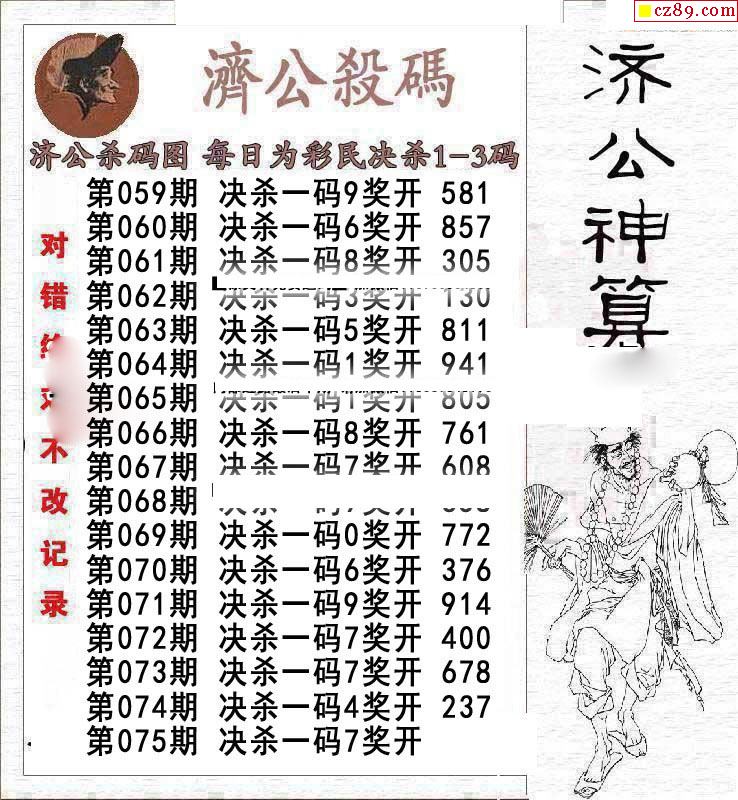 cz89.com
濟公殺碼
济公杀码图 每日为彩民决杀1-3码
第059期 决杀一码9奖开 581
第060期 决杀一码6奖开 857
第061期 决杀一码8奖开 305
第062期 决杀一码3奖开 130
第063期 决杀一码5奖开 811
第064期 决杀一码1奖开 941
第065期 决杀一码1奖开 805
第066期 决杀一码8奖开 761
第067期 决杀一码7奖开 608
第068期
第069期 决杀一码0奖开 772
第070期 决杀一码6奖开 376
第071期 决杀一码9奖开 914
第072期 决杀一码7奖开 400
第073期 决杀一码7奖开 678
第074期 决杀一码4奖开 237
第075期 决杀一码7奖开
对错
不改记录
济公神算